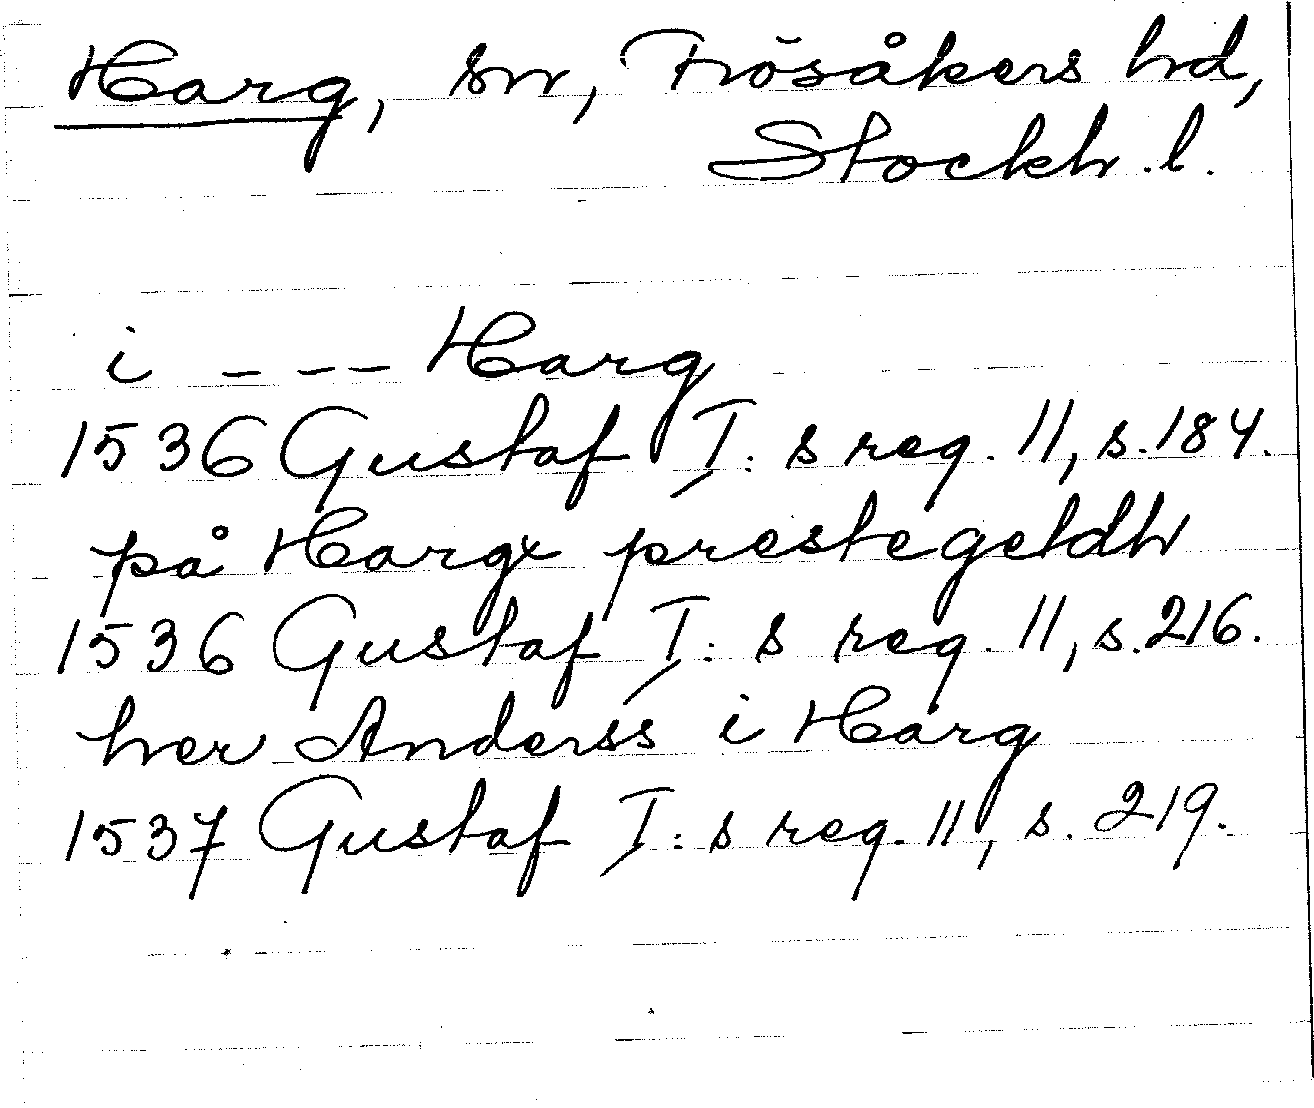 Harg, sn, Frösåkers hd,
Stockh. l.
i --- Harg
1536 Gustaf I: s reg. 11, s. 184.
på Hargx prestegeldh
1536 Gustaf I: s reg. 11, s. 216.
her Anderss i Harg
1537 Gustaf I: s reg. 11, s. 219.